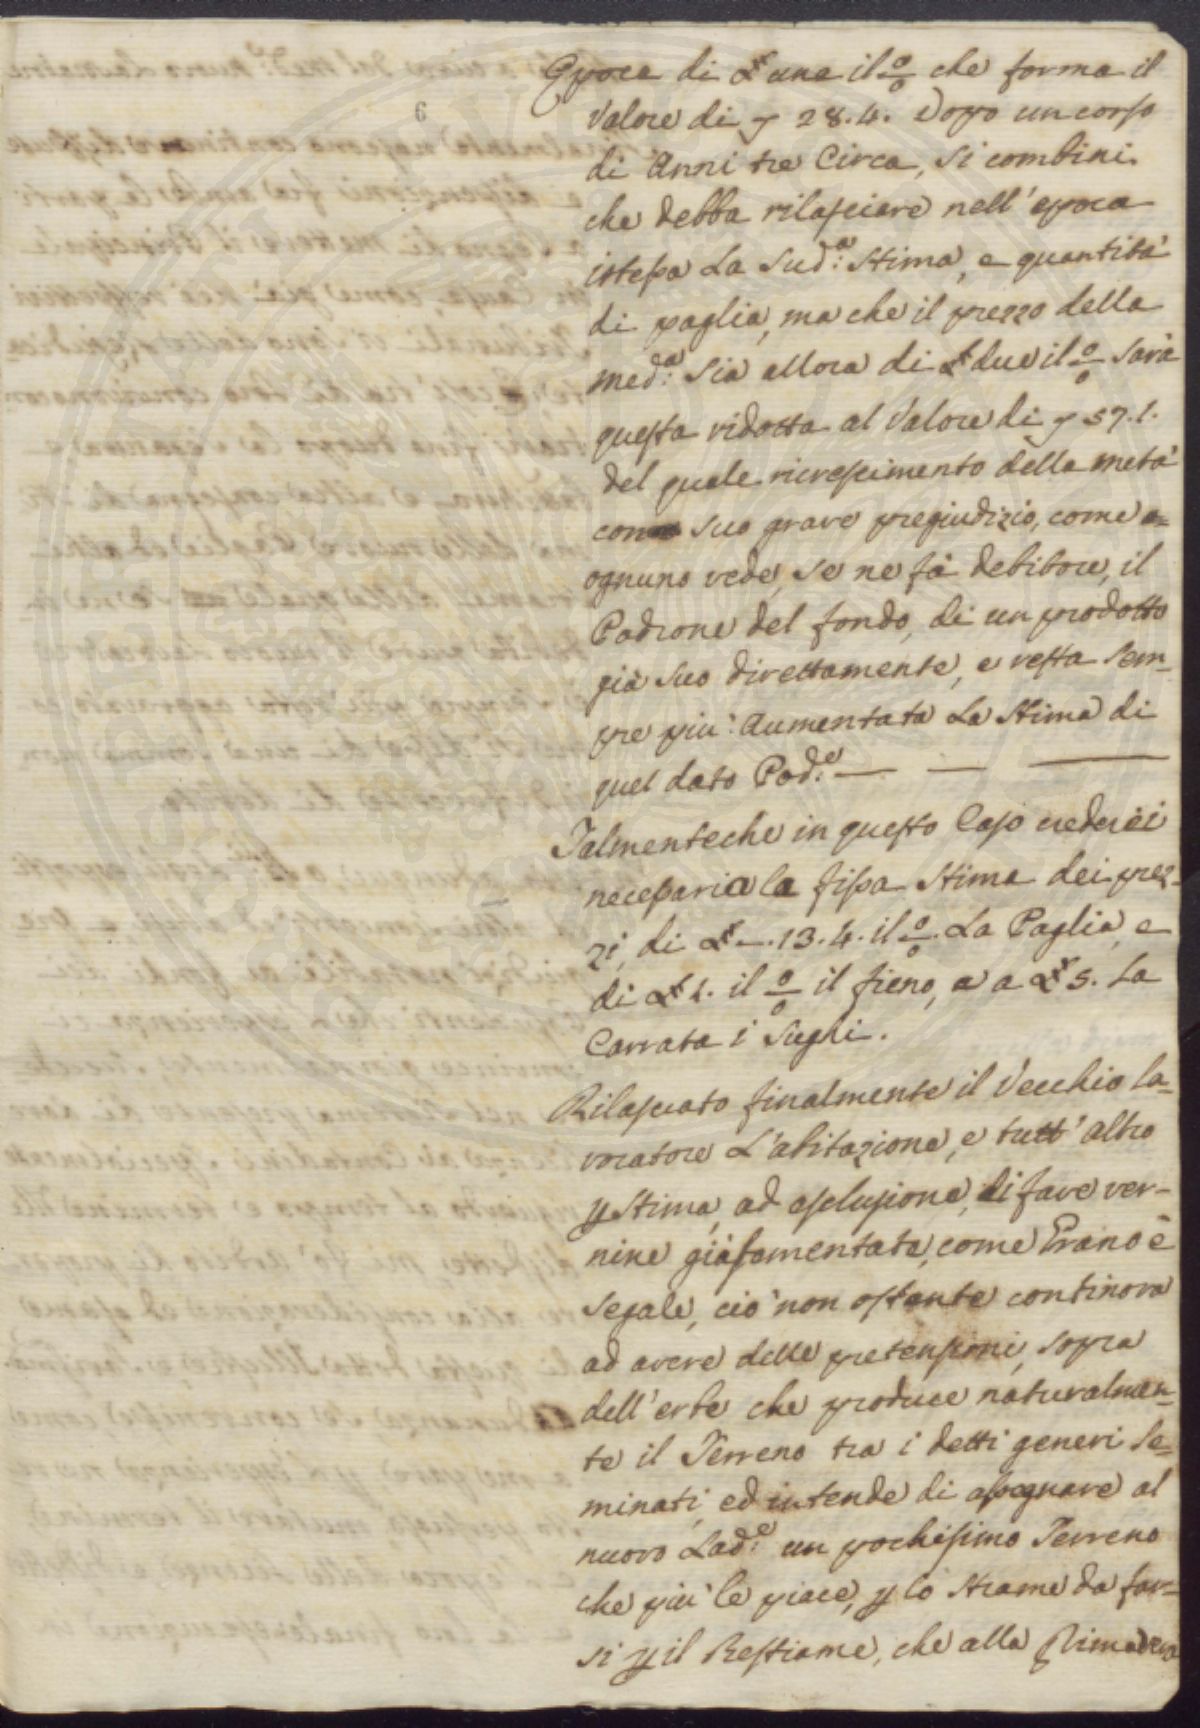 6
Epoca di £ una il % che forma il
Valore di 28.4. Dopo un corso
di Anni tre Circa, si combini
che debba rilasciare nell'epoca
istessa La Sud.a Stima, e quantità
di paglia, ma che il prezzo della
med.a sia allora di £ due il % sarà
questa ridotta al Valore di 57.1.
del quale ricrescimento della metà
con suo grave pregiudizio, come a=
ognuno vede, se ne fà debitore, il
Padrone del fondo, di un prodotto
già suo direttamente, e resta sem=
pre più aumentata La Stima di
quel dato Pod.e — — —
Talmenteche in questo Caso crederei
necessaria la fissa Stima dei prez=
zi, di £ —.13.4. il %. La Paglia, e
di £ 1. il % il fieno, e a £ 5. la
Carrata i Sughi.
Rilasciato finalmente il Vecchio La=
voratore L'abitazione, e tutt'altro
p Stima, ad esclusione, di fave ver=
nine già sementate, come Grano è
Segale, ciò non ostante continova
ad avere delle pretensioni, sopra
dell'erbe che produce naturalmen=
te il Terreno tra i detti generi se=
minati, ed intende di assegnare al
nuovo Lad.e un pochissimo Terreno
che più le piace, p lo Strame da far=
si p il Bestiame, che alla